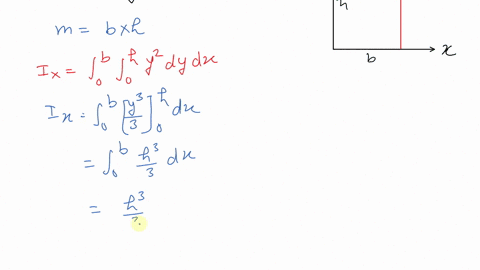 m = b × h
h
I_x = ∫_0^b ∫_0^h y² dy dx
b
x
I_x = ∫_0^b [y³/3]_0^h dx
= ∫_0^b h³/3 dx
= h³/